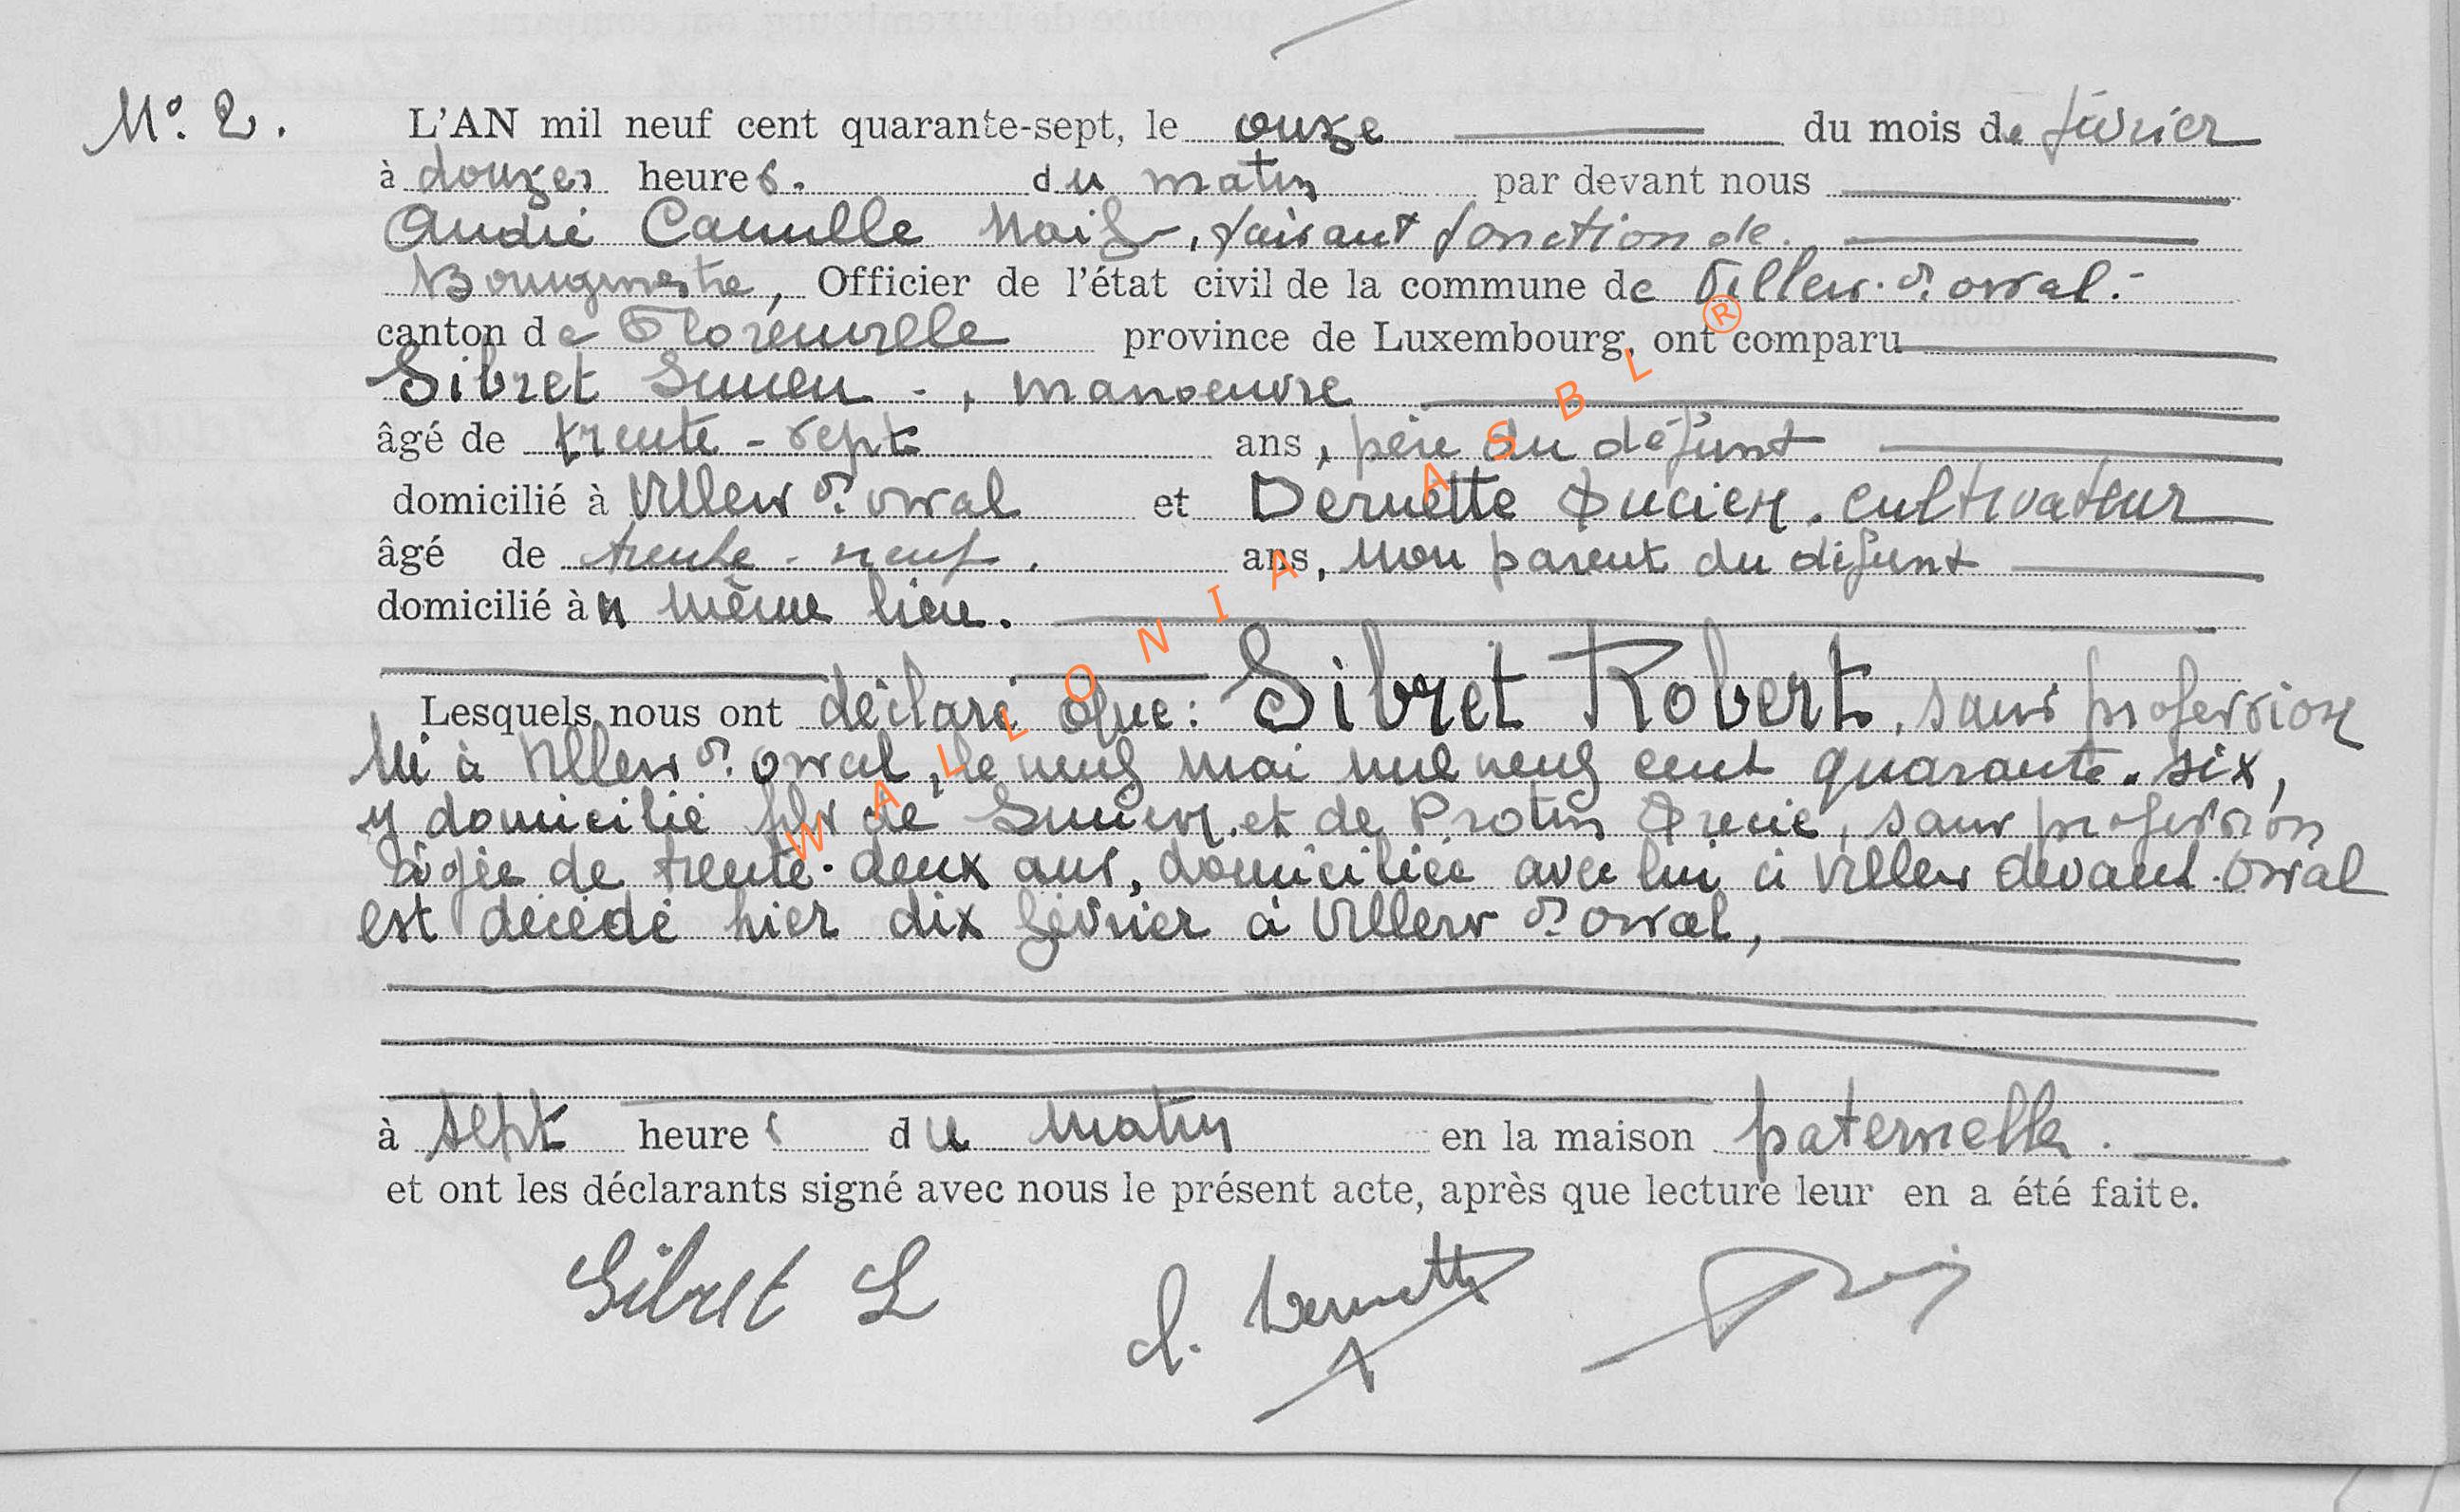 N°. 2. L'AN mil neuf cent quarante-sept, le onze du mois de février
à douze heures. du matin par devant nous
André Camille Naif, faisant fonction de
Bourgmestre, Officier de l'état civil de la commune de Villers-dt orval.-
canton de Florenville province de Luxembourg, ont comparu
Sibret Lucien -, manoeuvre
âgé de trente-sept ans, père du défunt
domicilié à Villers dt. orval et Dernette Lucien. cultivateur
âgé de trente-neuf. ans, non parent du défunt
domicilié à même lieu.
Lesquels nous ont déclaré que: Sibret Robert, sans profession
Né à Villers dt. orval, le neuf mai mil neuf cent quarante-six,
y domicilié fils de Lucien et de Protin Lucie, sans profession
âgée de trente-deux ans, domiciliée avec lui à Villers devant-orval
est décédé hier dix février à Villers dt orval,
à sept heures du matin en la maison paternelle.
et ont les déclarants signé avec nous le présent acte, après que lecture leur en a été faite.
Sibret L L. Dernette
WALLONIA ASBL ®